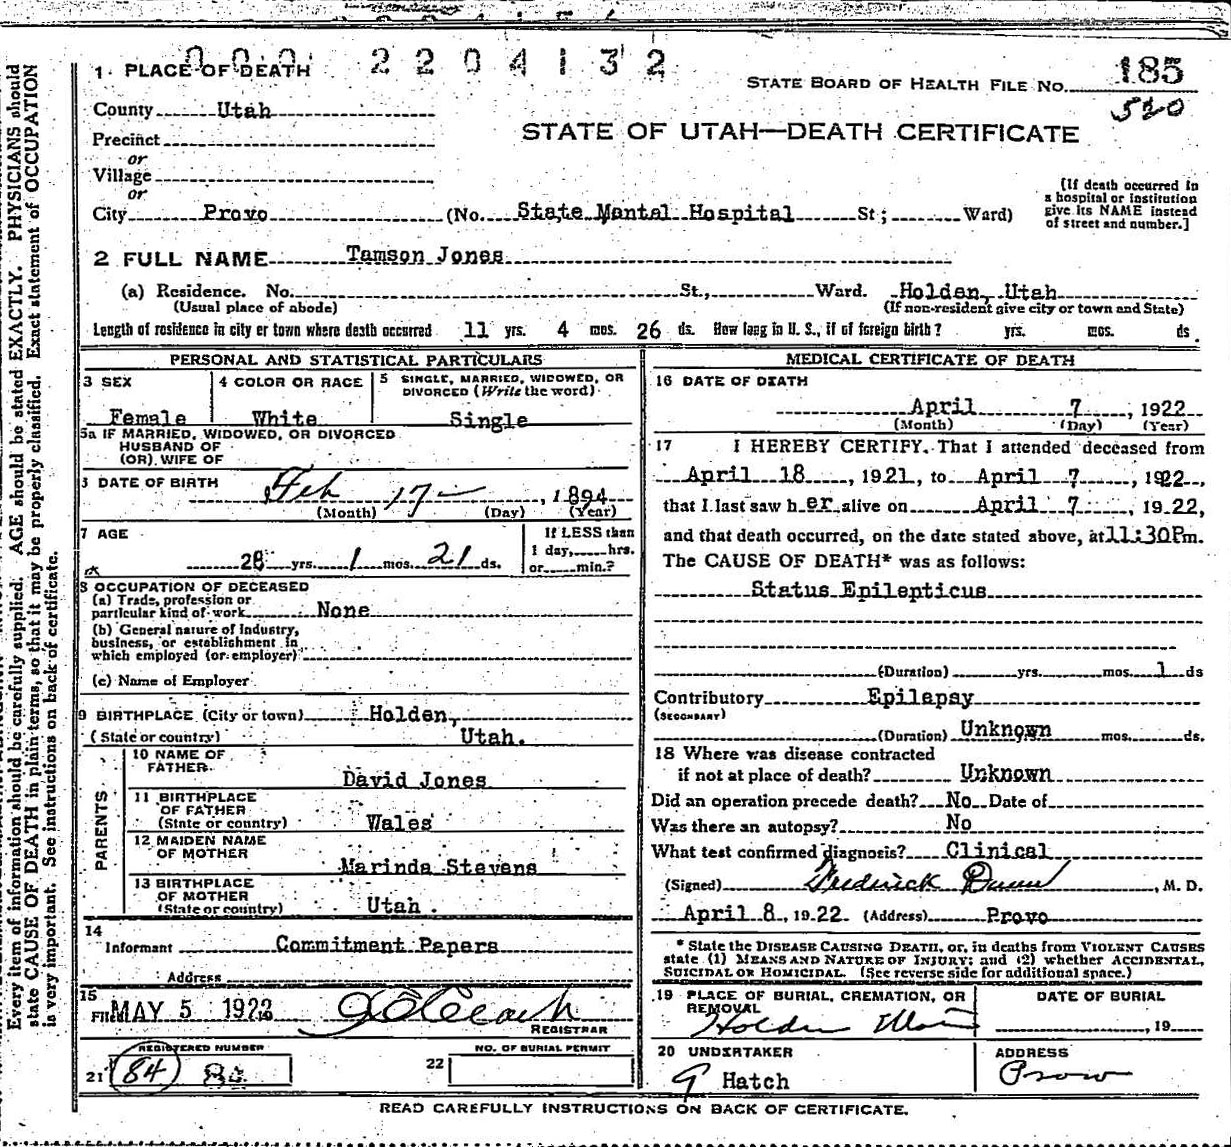 2204132
1 PLACE OF DEATH
STATE BOARD OF HEALTH FILE No. 185
520
County Utah
STATE OF UTAH—DEATH CERTIFICATE
Precinct
or
Village
or
City Provo (No. State Mental Hospital St; Ward)
[If death occurred in
a hospital or institution
give its NAME instead
of street and number.]
2 FULL NAME Tamson Jones
(a) Residence. No. St., Ward. Holden, Utah
(Usual place of abode) (If non-resident give city or town and State)
Length of residence in city er town where death occurred 11 yrs. 4 mos. 26 ds. How long in U. S., if of foreign birth? yrs. mos. ds.
PERSONAL AND STATISTICAL PARTICULARS
3 SEX
Female
4 COLOR OR RACE
White
5 SINGLE, MARRIED, WIDOWED, OR
DIVORCED (Write the word)
Single
5a IF MARRIED, WIDOWED, OR DIVORCED
HUSBAND OF
(OR) WIFE OF
6 DATE OF BIRTH Feb 17 , 1894
(Month) (Day) (Year)
7 AGE
28 yrs. 1 mos. 21 ds.
If LESS than
1 day, hrs.
or min.?
8 OCCUPATION OF DECEASED
(a) Trade, profession or
particular kind of work None
(b) General nature of Industry,
business, or establishment in
which employed (or employer)
(c) Name of Employer
9 BIRTHPLACE (City or town) Holden,
(State or country) Utah.
PARENTS
10 NAME OF
FATHER
David Jones
11 BIRTHPLACE
OF FATHER
(State or country) Wales
12 MAIDEN NAME
OF MOTHER
Marinda Stevens
13 BIRTHPLACE
OF MOTHER
(State or country) Utah.
14
Informant Commitment Papers
Address
15
MAY 5 1922
REGISTRAR
REGISTERED NUMBER
21 84
22 NO. OF BURIAL PERMIT
MEDICAL CERTIFICATE OF DEATH
16 DATE OF DEATH
April 7 , 1922
(Month) (Day) (Year)
17 I HEREBY CERTIFY. That I attended deceased from
April 18 , 1921, to April 7 , 1922,
that I last saw her alive on April 7 , 1922,
and that death occurred, on the date stated above, at 11:30Pm.
The CAUSE OF DEATH* was as follows:
Status Epilepticus
(Duration) yrs. mos. 1 ds
Contributory Epilepsy
(SECONDARY)
(Duration) Unknown mos. ds.
18 Where was disease contracted
if not at place of death? Unknown
Did an operation precede death? No Date of
Was there an autopsy? No
What test confirmed diagnosis? Clinical
(Signed) Frederick Dunn , M. D.
April 8, 1922 (Address) Provo
* State the DISEASE CAUSING DEATH, or, in deaths from VIOLENT CAUSES
state (1) MEANS AND NATURE OF INJURY; and (2) whether ACCIDENTAL,
SUICIDAL OR HOMICIDAL. (See reverse side for additional space.)
19 PLACE OF BURIAL, CREMATION, OR
REMOVAL
Holden Utah
DATE OF BURIAL
, 19
20 UNDERTAKER
G Hatch
ADDRESS
Provo
READ CAREFULLY INSTRUCTIONS ON BACK OF CERTIFICATE.
Every item of information should be carefully supplied. AGE should be stated EXACTLY. PHYSICIANS should
state CAUSE OF DEATH in plain terms, so that it may be properly classified. Exact statement of OCCUPATION
is very important. See instructions on back of certificate.